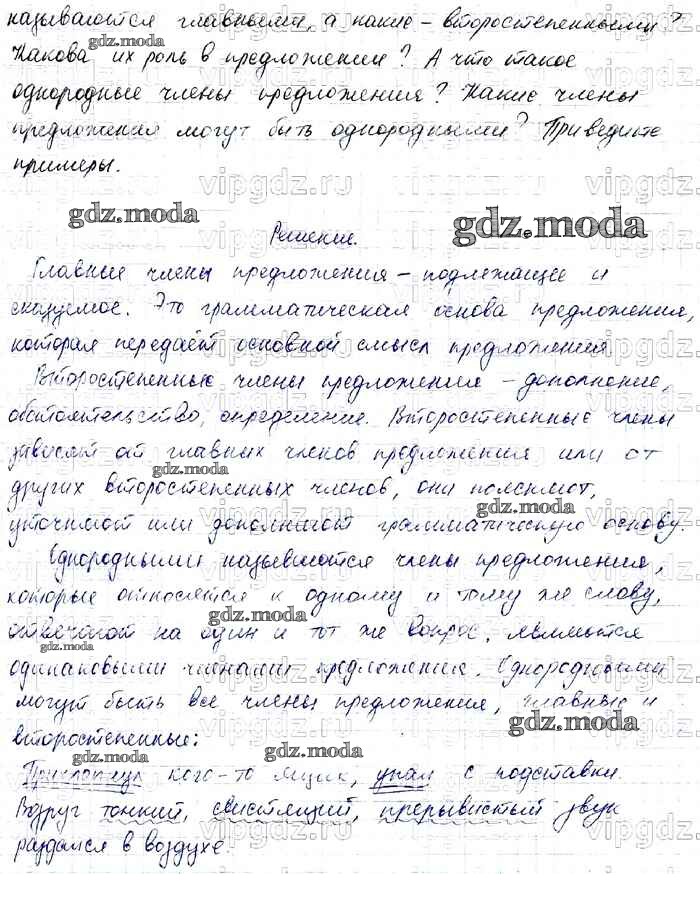 называются главными, а какие – второстепенными?
Какова их роль в предложении? А что такое
однородные члены предложения? Какие члены
предложения могут быть однородными? Приведите
примеры.
gdz.moda
gdz.moda
Решение.
Главные члены предложения – подлежащее и
сказуемое. Это грамматическая основа предложения,
которая передаёт основной смысл предложения
Второстепенные члены предложения – дополнение,
обстоятельство, определение. Второстепенные члены
зависят от главных членов предложения или от
gdz.moda
других второстепенных членов, они поясняют,
gdz.moda
уточняют или дополняют грамматическую основу.
Однородными называются члены предложения,
которые относятся к одному и тому же слову,
gdz.moda
отвечают на один и тот же вопрос, являются
gdz.moda
одинаковыми членами предложения. Однородными
могут быть все члены предложения, главные и
gdz.moda
второстепенные:
gdz.moda
кого-то ящик, упал с подставки.
Вдруг тонкий, свистящий, прерывистый звук
раздался в воздухе.